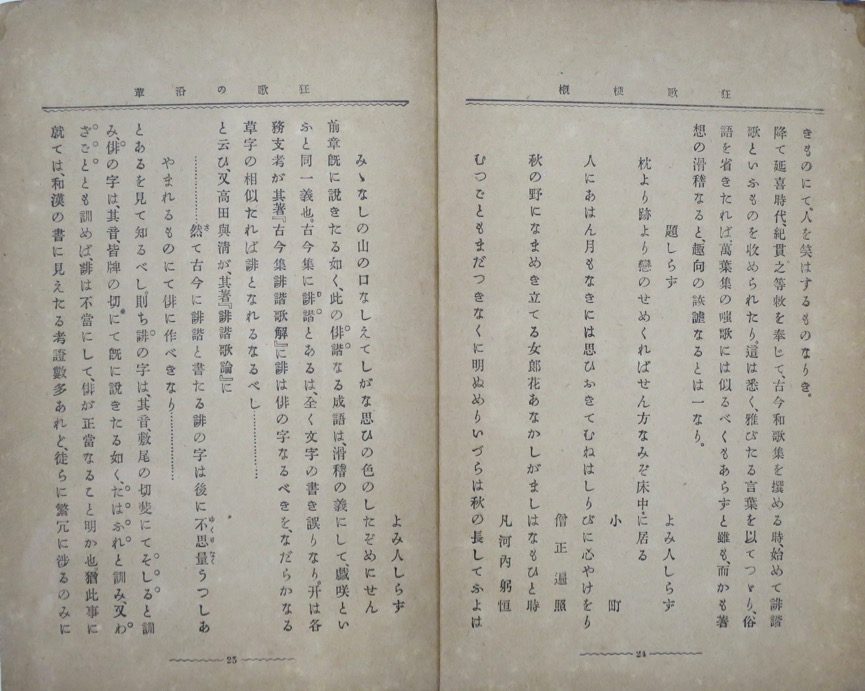 狂歌梗概
きものにて、人を笑はするものなりき。
降て延喜時代、紀貫之等敕を奉じて、古今和歌集を撰める時始めて誹諧
歌といふものを收められたり。這は悉く、雅びたる言葉を以てつゞり、俗
語を省きたれば、萬葉集の嗤歌には似るべくもあらずと雖も、而かも著
想の滑稽なると、趣向の詼謔なるとは一なり。
題しらず
よみ人しらず
枕より跡より戀のせめくればせん方なみぞ床中に居る
小町
人にあはん月もなきには思ひおきてむねはしりびに心やけをり
僧正遍照
秋の野になまめき立てる女郎花あなかしがましはなもひと時
凡河内躬恒
むつごともまだつきなくに明ぬめりいづらは秋の長してふよは
24
狂歌の沿革
よみ人しらず
みゝなしの山の口なしえてしがな思ひの色のしたぞめにせん
前章既に說きたる如く、此の俳諧なる成語は、滑稽の義にして、戲咲とい
ふと同一義也。古今集に誹諧とあるは、全く文字の書き誤りなり。开は各
務支考が、其著『古今集誹諧歌解』に誹は俳の字なるべきを、なだらかなる
草字の相似たれば誹となれるなるべし…………
と云ひ、又高田與清が、其著『誹諧歌論』に
…………然て古今に誹諧と書たる誹の字は後に不思量うつしあ
やまれるものにて俳に作べきなり…………
とあるを見て知るべし。則ち誹の字は、其音、敷尾の切斐にてそしると訓
み、俳の字は、其音、皆牌の切にて既に說きたる如く、たはふれと訓み、又、わ
ざごととも訓めば、誹は不當にして、俳が正當なること明か也。猶此事に
就ては、和漢の書に見えたる考證數多あれど、徒らに繁冗に涉るのみに
25